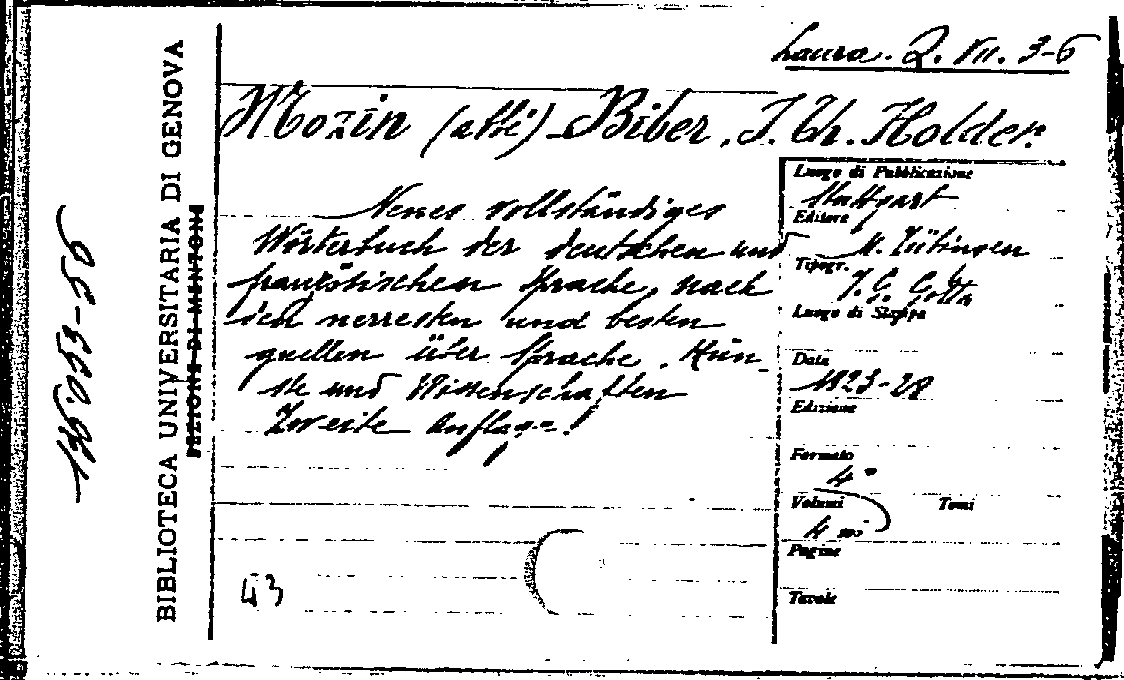 Laura. 2. VII. 3-6
Mozin (abbé) - Biber, J. Th. Holder.
Neues vollständiges
Wörterbuch der deutschen und
französischen Sprache, nach
den neuesten und besten
quellen über Sprache. Kün-
ste und Wissenschaften
Zweite Auflage.
Luogo di Pubblicazione
Stuttgart
Editore
u. Tübingen
Tipogr.
J. G. Cotta
Luogo di Stampa
Data
1823-28
Edizione
Formato
4°
Volumi Tomi
4
Pagine
Tavole
43
BIBLIOTECA UNIVERSITARIA DI GENOVA